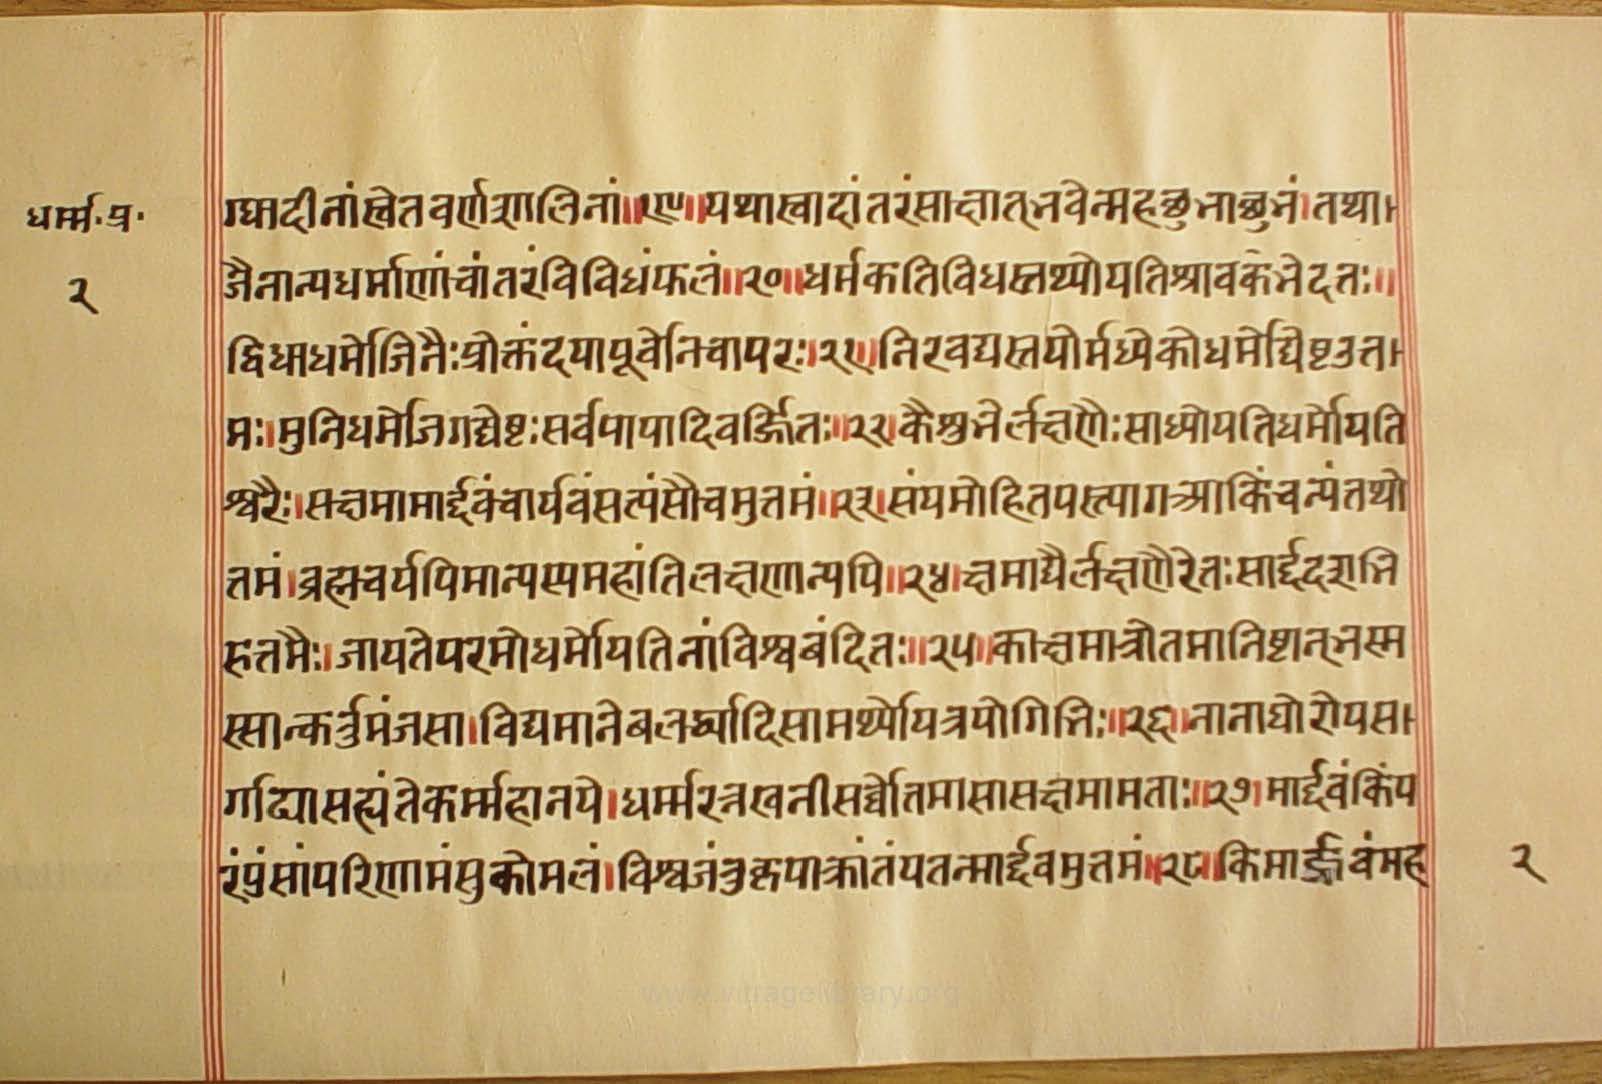 धर्म्म.प्र.
२
ग्धादीनांस्वेतवर्णशालिनां॥१९॥यथास्वादांतरंसाक्षात्भवेन्महछुभाछुभं।तथा
जैनान्यधर्माणांचांतरंविविधंफलं॥२०॥धर्मकतिविधस्तथ्योयतिश्रावकभेदतः॥
द्विधाधर्मोजिनैःप्रोक्तंदयापूर्वोनिचापरः॥२१॥निरवद्यस्तयोर्मध्येकोधर्मोद्यिष्टउत्त
मः।मुनिधर्मोजिगद्येष्टःसर्वपापादिवर्ज्जितः॥२२।कैशुभैर्लक्षणैःसाध्योयतिधर्मोयति
श्वरैः।सत्क्षमामार्द्दवंचार्यवंसत्यंसौचमुत्तमं॥२३।संयमोहितपस्त्यागआकिंचन्यंतथो
त्तमं।ब्रह्मचर्यपिमान्यस्यमहांतिलक्षणान्यपि॥२४।क्षमाद्यैर्लक्षणैरेतःसार्द्ददशभि
रुत्तमैः।जायतेपरमोधर्मोयतिनांविश्वबंदितः॥२५॥काक्षमात्रोतमानिष्टान्भस्म
स्सान्कर्त्तुमंजसा।विद्यमानेबलर्घ्यादिसामर्थ्येयित्रयोगिभिः॥२६॥नानाघोरोपसा
र्गाद्यासह्यंतेकर्म्महानये।धर्म्मरत्नखनीसर्व्वोतमासासक्षमामताः॥२७।मार्द्दवंकिंप
रंपुंसांपरिणामंसुकोमलं।विश्वजंतुकृपाक्रांतंयतन्मार्द्दवमुत्तमं॥२८॥किमार्ज्जवंमह
२